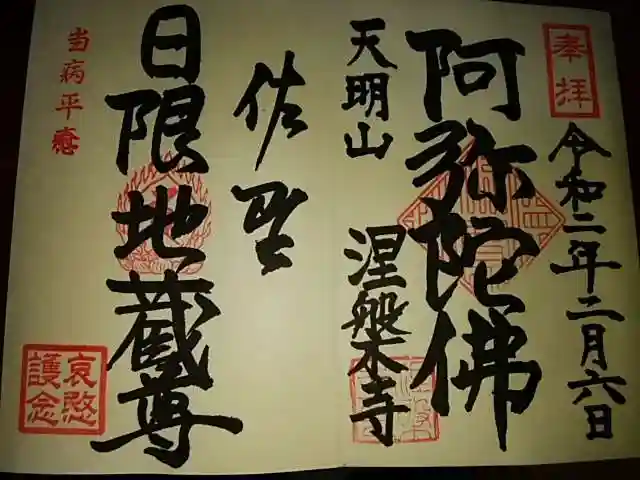 奉拝
令和二年二月六日
阿弥陀佛
天明山
涅槃寺
佐野
日限地蔵尊
当病平癒
哀愍
護念